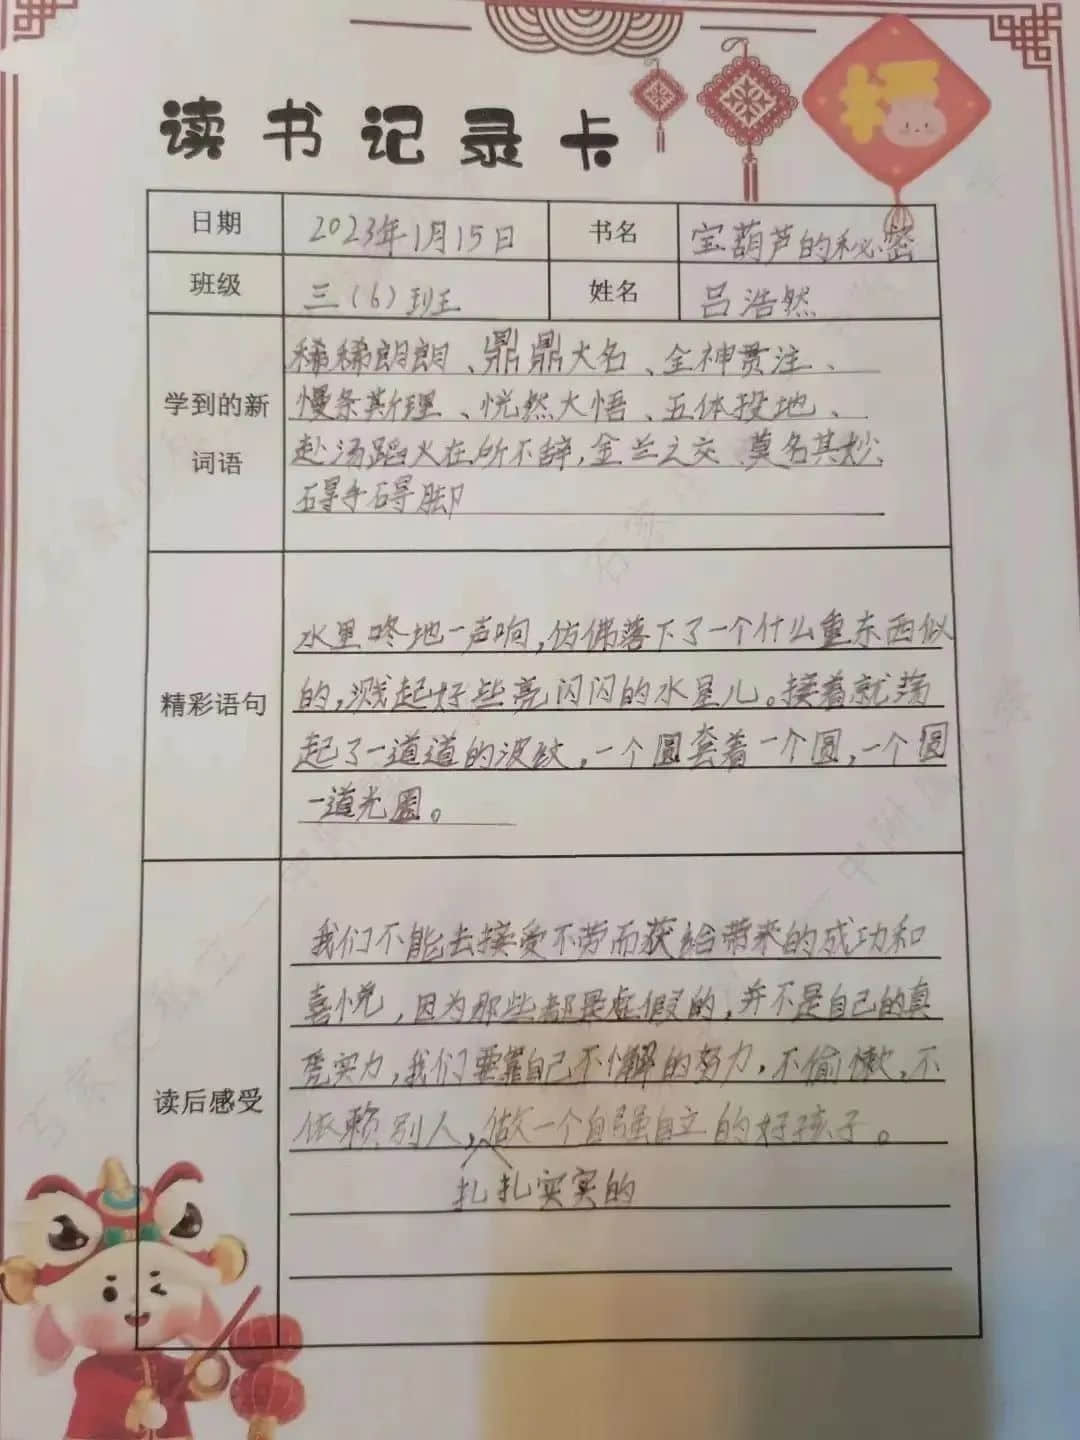 福
读书记录卡
日期 2023年1月15日 书名 宝葫芦的秘密
班级 三（6）班 姓名 吕浩然
学到的新词语
稀稀朗朗、鼎鼎大名、全神贯注、
慢条斯理、恍然大悟、五体投地、
赴汤蹈火在所不辞，金兰之交 莫名其妙
碍手碍脚
精彩语句
水里咚地一声响，仿佛落下了一个什么重东西似
的，溅起好些亮闪闪的水星儿。接着就荡
起了一道道的波纹，一个圆套着一个圆，一个圆
一道光圈。
读后感受
我们不能去接受不劳而获给带来的成功和
喜悦，因为那些都是虚假的，并不是自己的真
实力，我们要靠自己不懈的努力，不偷懒，不
依赖别人，做一个自强自立的好孩子。
扎扎实实的